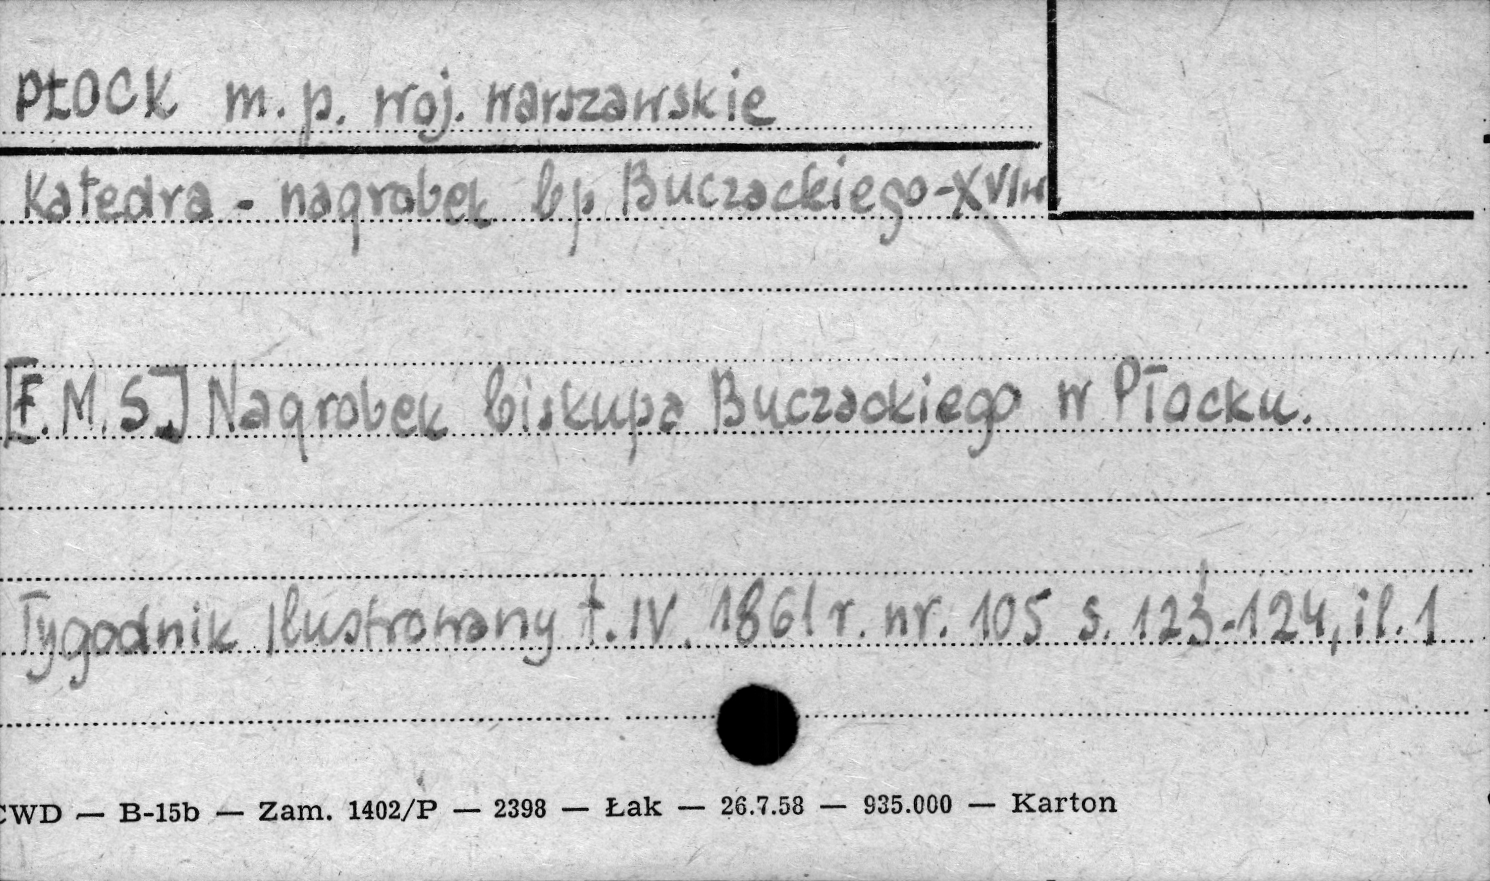 PŁOCK m. p. woj. warszawskie
Katedra - nagrobek bp Buczackiego - XVI w.
[F.M.S.] Nagrobek biskupa Buczackiego w Płocku.
Tygodnik Ilustrowany t. IV. 1861 r. nr. 105 s. 123-124, il. 1
CWD — B-15b — Zam. 1402/P — 2398 — Łak — 26.7.58 — 935.000 — Karton